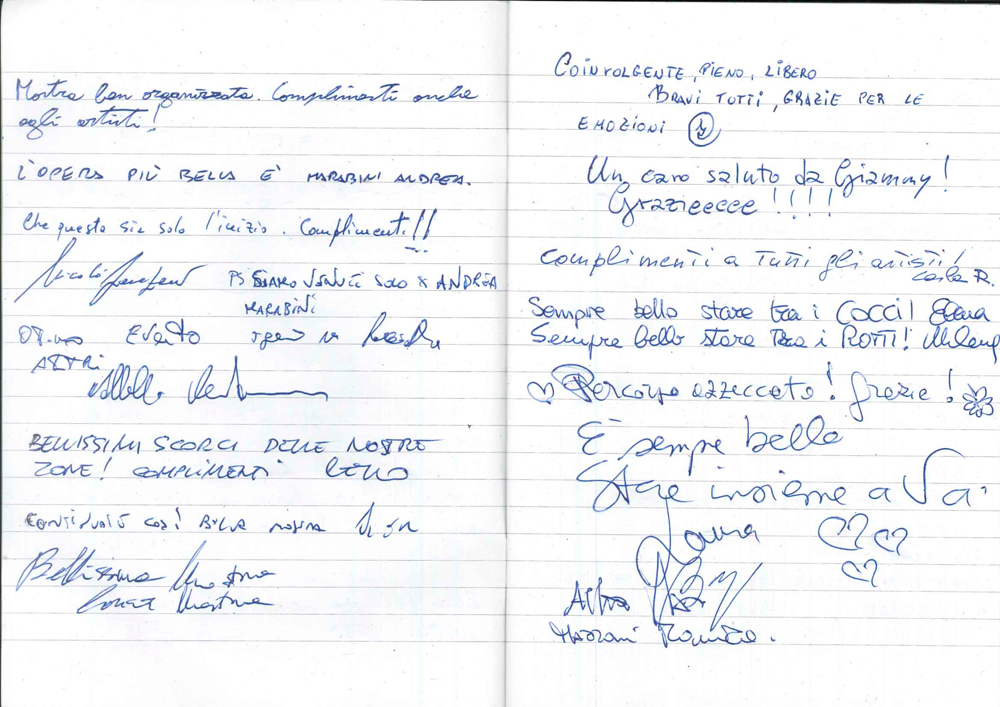 Mostra ben organizzata. Complimenti anche
agli artisti!
L'OPERA PIÙ BELLA E' MARABINI ANDREA.
Che questo sia solo l'inizio. Complimenti!!
PS SIAMO VENUTI SOLO X ANDREA
MARABINI
EVENTO
ALTRI
BELLISSIMI SCORCI DELLE NOSTRE
ZONE! COMPLIMENTI
CONTINUATE COSÌ! BELLA MOSTRA
Bellissima Mostra
Mostra
COINVOLGENTE, PIENO, LIBERO
BRAVI TUTTI, GRAZIE PER LE
EMOZIONI
Un caro saluto da Giammy!
Grazieeeee!!!!
Complimenti a Tutti gli artisti!
Carla R.
Sempre bello stare tra i COCCI! Elena
Sempre bello stare tra i ROTTI! Milena
Percorso azzeccato! Grazie!
È sempre bello
Stare insieme a
Laura